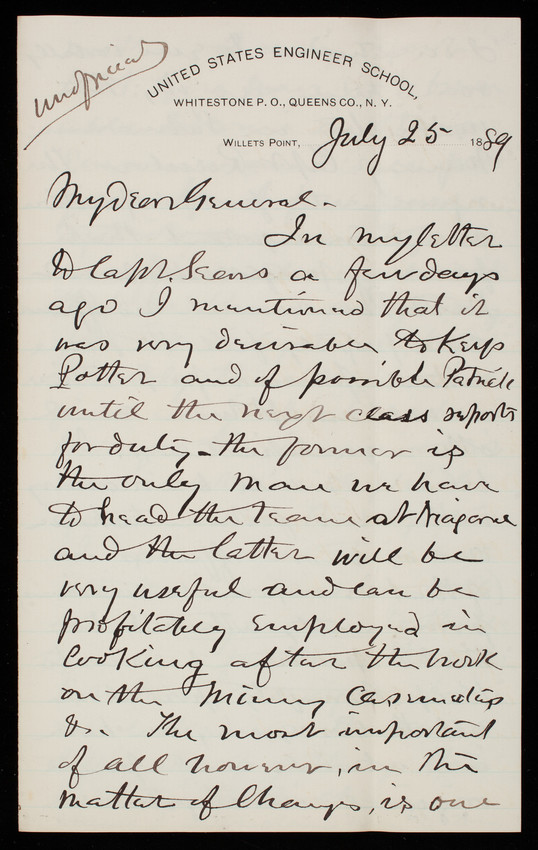 unofficial
UNITED STATES ENGINEER SCHOOL,
WHITESTONE P. O., QUEENS CO., N. Y.
WILLETS POINT, July 25 1889
My dear General -
In my letter
to Capt. Sears a few days
ago I mentioned that it
was very desirable to keep
Potter and if possible Patrick
until the next class reports
for duty - the former is
the only man we have
to head the team at Niagara
and the latter will be
very useful and can be
profitably employed in
looking after the work
on the Mining Casemates
&c. The most important
of all however, in the
matter of change, is one